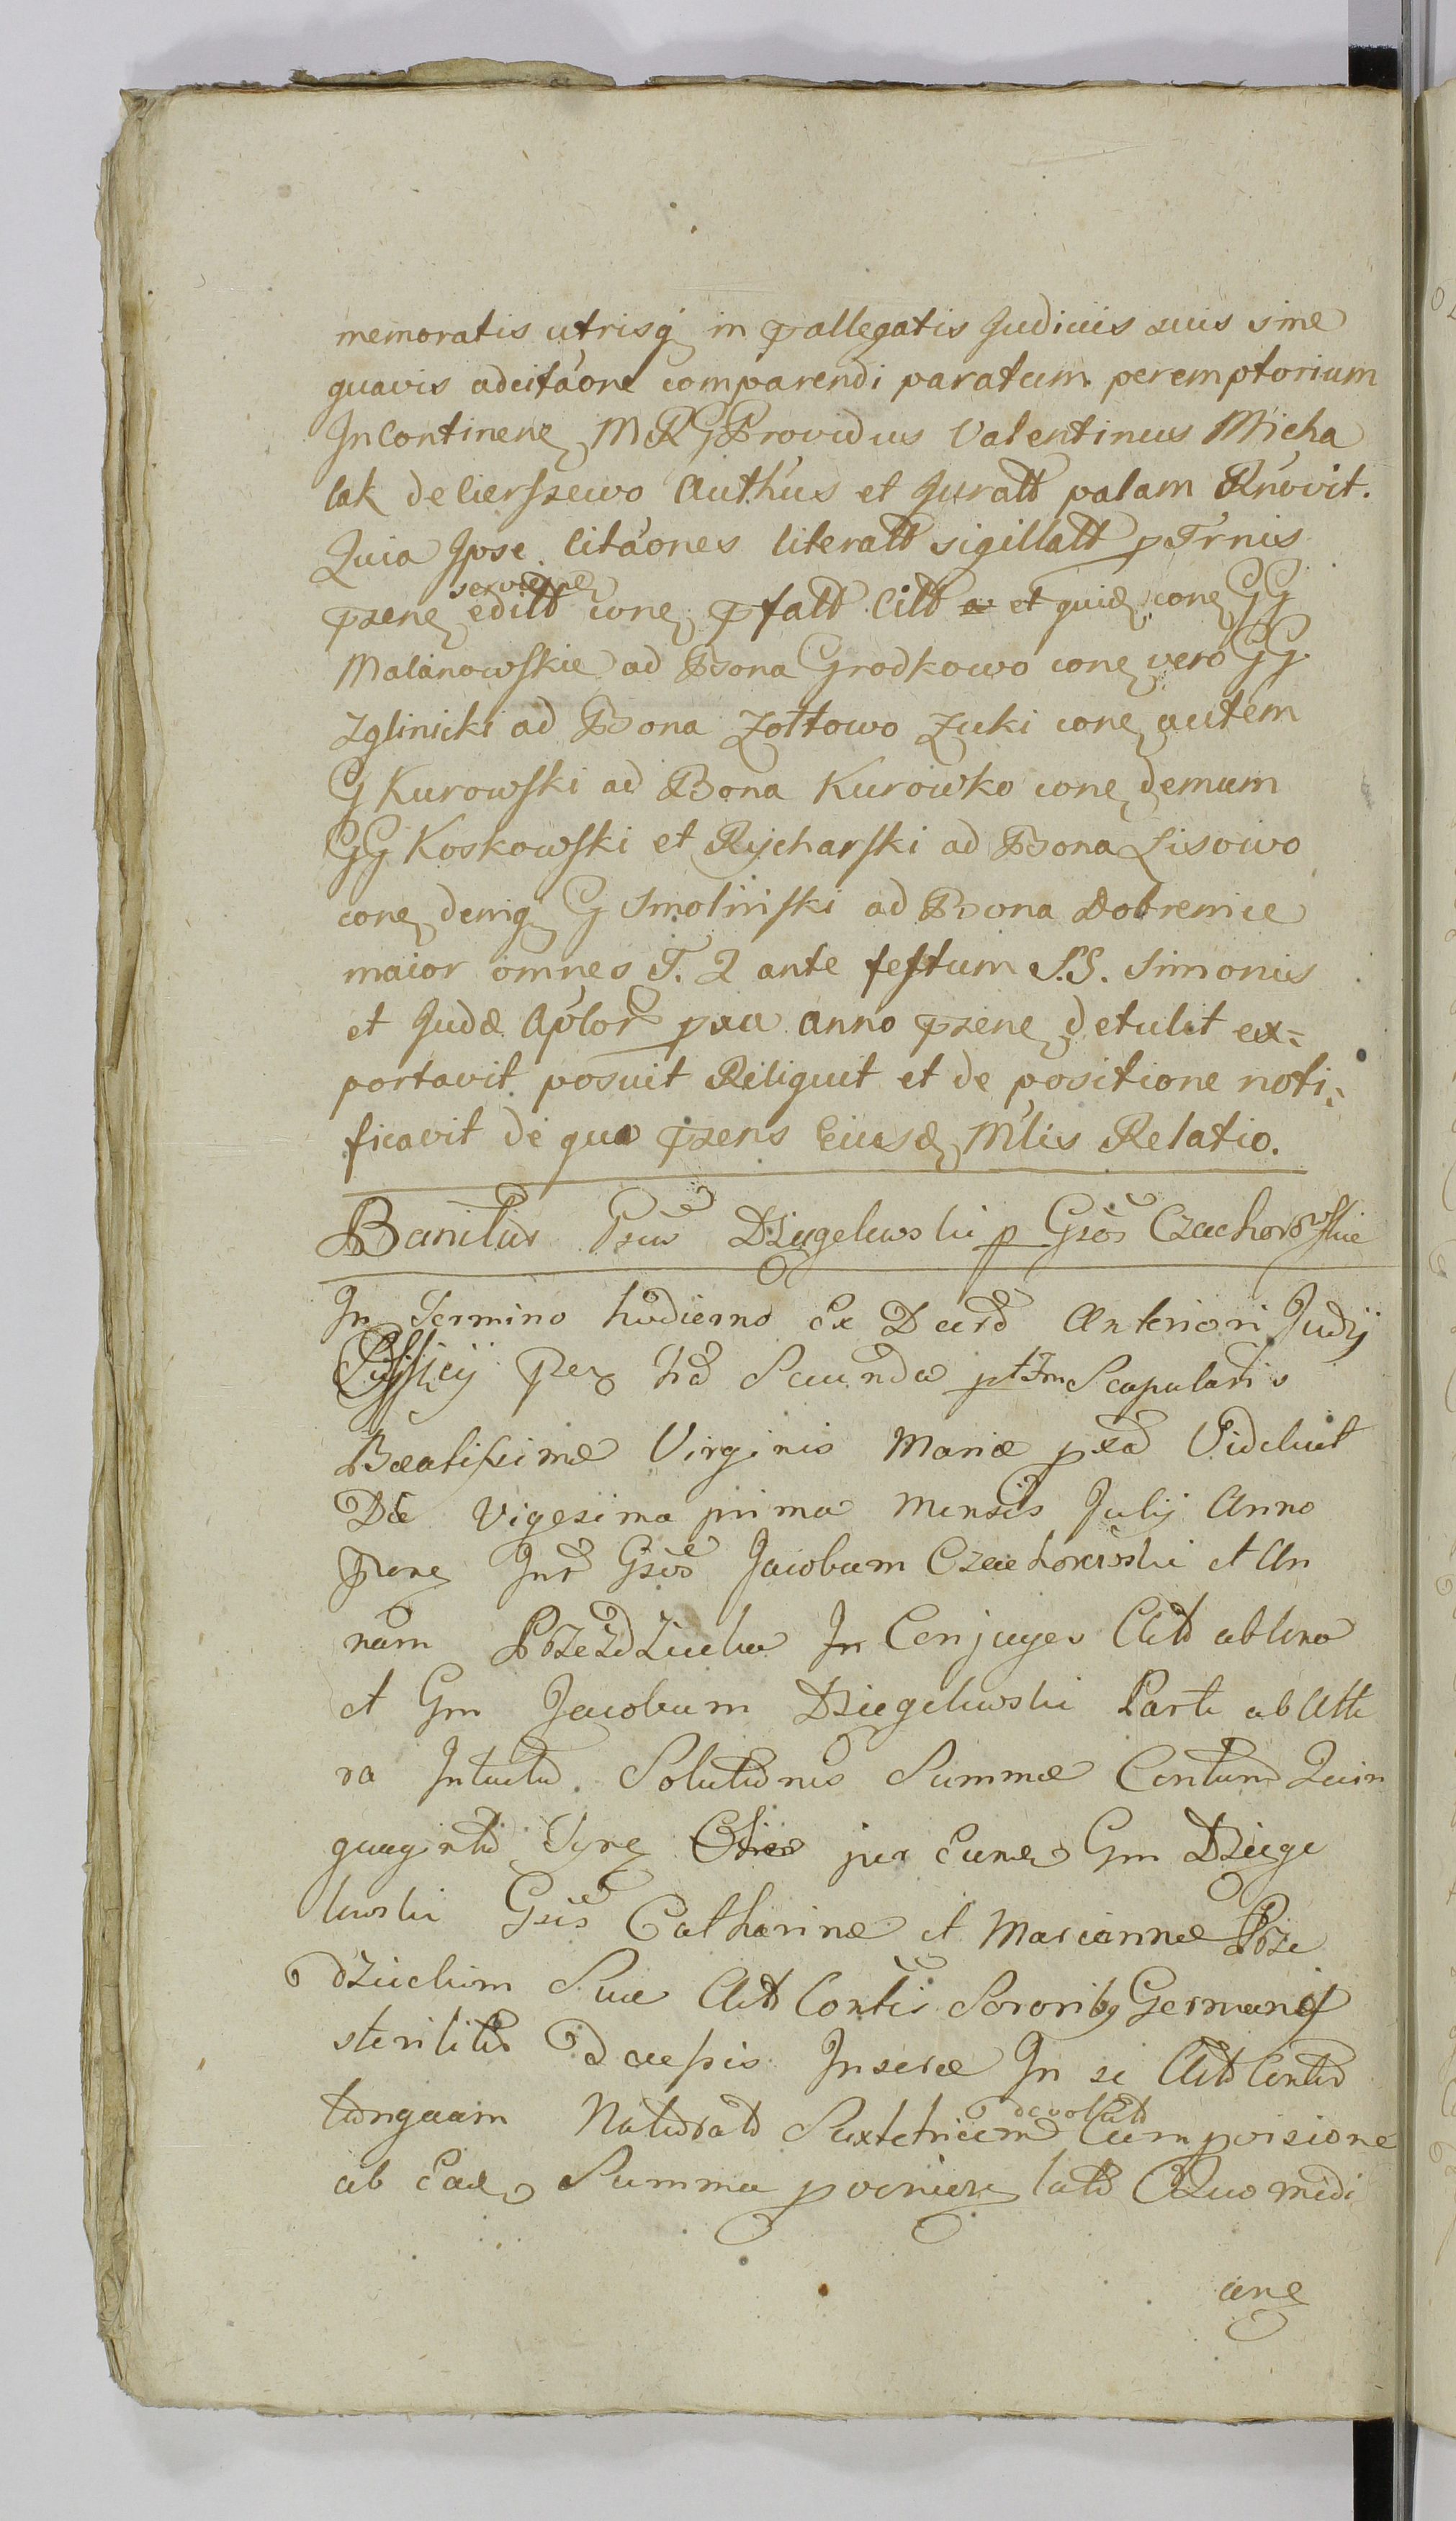 memoratis utrisq in pallegatis Judiciis suis sine
quavis adcitaone comparendi paratum peremptorium
In Continene MRG Providus Valentinus Micha
lak de Cierszewo Authus et Juratt palam Rnovit.
Quia Ipse Citaones literatt sigillatt p Trnis
servicne
pzene editt cone pfatt Citt et quid cone GG
Malanowskie ad Bona Grodkowo cone vero GG
Zglinicki ad Bona Zołtowo Zuki cone autem
G Kurowski ad Bona Kurowko cone demum
GG Koskowski et Rycharski ad Bona Lisowo
cone deniq G Smolinski ad Bona Dobrenice
maior omnes F. 2 ante festum S.S. Simonis
et Judæ Aplor pxa anno pzene detulit ex=
portavit posuit Reliquit et de positione noti=
ficavit de qua pzens Eiusd Mlis Relatio.
Banitus Dziegelewski p Gsos Czachorowskie
In Termino hodierno Ex Decrd Anteriori Judij
Officij fer 2da Secunda pt Fm Scapularis
Beatissimæ Virginis Mariæ pxa Videlicet
Die Vigesima prima Mensis Julij Anno
pzene Intr Gsos Jacobum Czachorowski et An
nam Przezdziecka Conjuges Citt ab Una
et Gm Jacobum Dziegelewski Parte ab Alte
ra Intuitu Solutionis Summæ Centum Quin
quaginta Tyne per Eund Gm Dziege
lewski Gsis Catharinæ et Mariannæ Prze
dzieckim Suæ Citt Contis Sororibq Germaniq
sterilitr Decessis In se Citt Contis
devolutt
tanquam Naturatt Suxtetricem Cum pvisione
ab Ead Summa pveniene latt Quo medi
ane